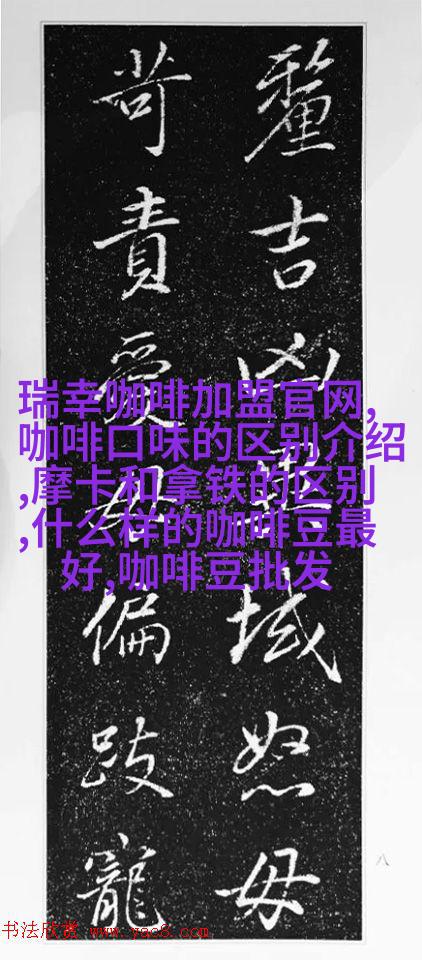 釐吉凶異域怒毋
苛責愛毋偏跂寵
瑞幸咖啡加盟官网,
咖啡口味的区别介绍
,摩卡和拿铁的区别
,什么样的咖啡豆最
好,咖啡豆批发
八
书法欣赏 www.yac8.com